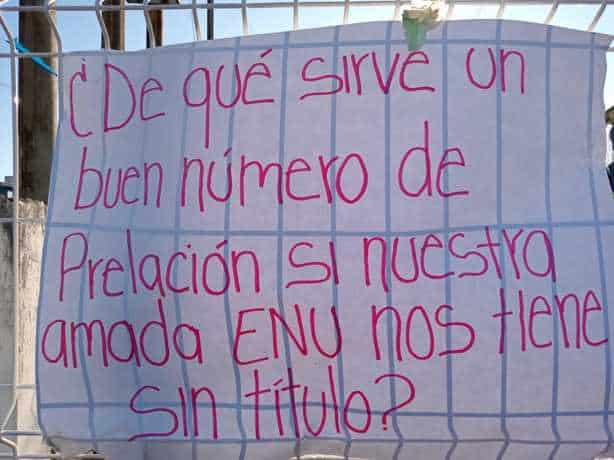 ¿De qué sirve un
buen número de
Prelación si nuestra
amada ENU nos tiene
sin título?